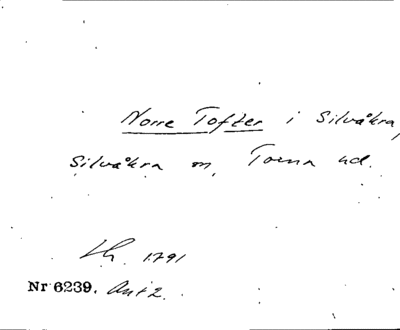 Norre Tofter i Silvåkra,
Silvåkra sn, Torna hd.
Lh. 1791
Nr 6239. Ant 2.